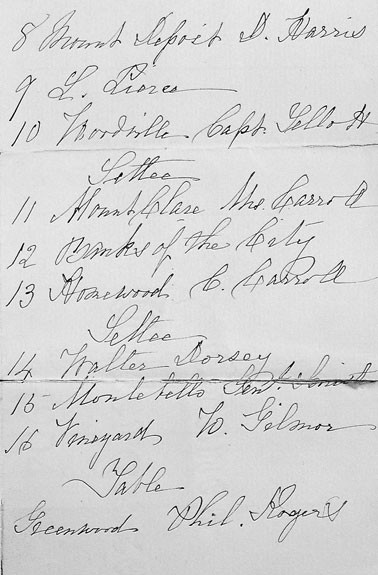 8 Mount Deposit D. Harris
9 L. Pierce
10 Woodville Capt. Yellott
Settee
11 Mount Clare Mrs. Carroll
12 Banks of the City
13 Homewood C. Carroll
Settee
14 Walter Dorsey
15 Montebello Genl. Smith
16 Vineyard W. Gilmor
Table
Greenwood Phil. Rogers